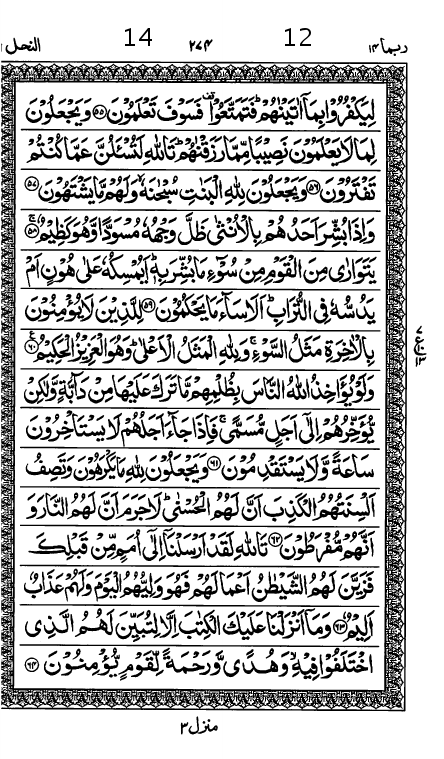 النحل ١٦ 14 ٢٧٤ 12 ربما ١٤
لِيَكْفُرُوْا بِمَاۤ اٰتَيْنٰهُمْ ؕ فَتَمَتَّعُوْا ۫ فَسَوْفَ تَعْلَمُوْنَ ﴿۵۵﴾ وَ يَجْعَلُوْنَ
لِمَا لَا يَعْلَمُوْنَ نَصِيْبًا مِّمَّا رَزَقْنٰهُمْ ؕ تَاللّٰهِ لَتُسْـَٔلُنَّ عَمَّا كُنْتُمْ
تَفْتَرُوْنَ ﴿۵۶﴾ وَ يَجْعَلُوْنَ لِلّٰهِ الْبَنٰتِ سُبْحٰنَهٗ ۙ وَ لَهُمْ مَّا يَشْتَهُوْنَ ﴿۵۷﴾
وَ اِذَا بُشِّرَ اَحَدُهُمْ بِالْاُنْثٰى ظَلَّ وَجْهُهٗ مُسْوَدًّا وَّ هُوَ كَظِيْمٌ ﴿۵۸﴾
يَتَوَارٰى مِنَ الْقَوْمِ مِنْ سُوْٓءِ مَا بُشِّرَ بِهٖ ؕ اَيُمْسِكُهٗ عَلٰى هُوْنٍ اَمْ
يَدُسُّهٗ فِى التُّرَابِ ؕ اَلَا سَآءَ مَا يَحْكُمُوْنَ ﴿۵۹﴾ لِلَّذِيْنَ لَا يُؤْمِنُوْنَ
بِالْاٰخِرَةِ مَثَلُ السَّوْءِ ۚ وَ لِلّٰهِ الْمَثَلُ الْاَعْلٰى ؕ وَ هُوَ الْعَزِيْزُ الْحَكِيْمُ ﴿۶۰﴾
وَ لَوْ يُؤَاخِذُ اللّٰهُ النَّاسَ بِظُلْمِهِمْ مَّا تَرَكَ عَلَيْهَا مِنْ دَآبَّةٍ وَّ لٰكِنْ
يُّؤَخِّرُهُمْ اِلٰۤى اَجَلٍ مُّسَمًّى ۚ فَاِذَا جَآءَ اَجَلُهُمْ لَا يَسْتَاْخِرُوْنَ
سَاعَةً وَّ لَا يَسْتَقْدِمُوْنَ ﴿۶۱﴾ وَ يَجْعَلُوْنَ لِلّٰهِ مَا يَكْرَهُوْنَ وَ تَصِفُ
اَلْسِنَتُهُمُ الْكَذِبَ اَنَّ لَهُمُ الْحُسْنٰى ؕ لَا جَرَمَ اَنَّ لَهُمُ النَّارَ وَ
اَنَّهُمْ مُّفْرَطُوْنَ ﴿۶۲﴾ تَاللّٰهِ لَقَدْ اَرْسَلْنَاۤ اِلٰۤى اُمَمٍ مِّنْ قَبْلِكَ
فَزَيَّنَ لَهُمُ الشَّيْطٰنُ اَعْمَالَهُمْ فَهُوَ وَلِيُّهُمُ الْيَوْمَ وَ لَهُمْ عَذَابٌ
اَلِيْمٌ ﴿۶۳﴾ وَ مَاۤ اَنْزَلْنَا عَلَيْكَ الْكِتٰبَ اِلَّا لِتُبَيِّنَ لَهُمُ الَّذِى
اخْتَلَفُوْا فِيْهِ ۙ وَ هُدًى وَّ رَحْمَةً لِّقَوْمٍ يُّؤْمِنُوْنَ ﴿۶۴﴾
٧
ع
١٣
منزل ٣